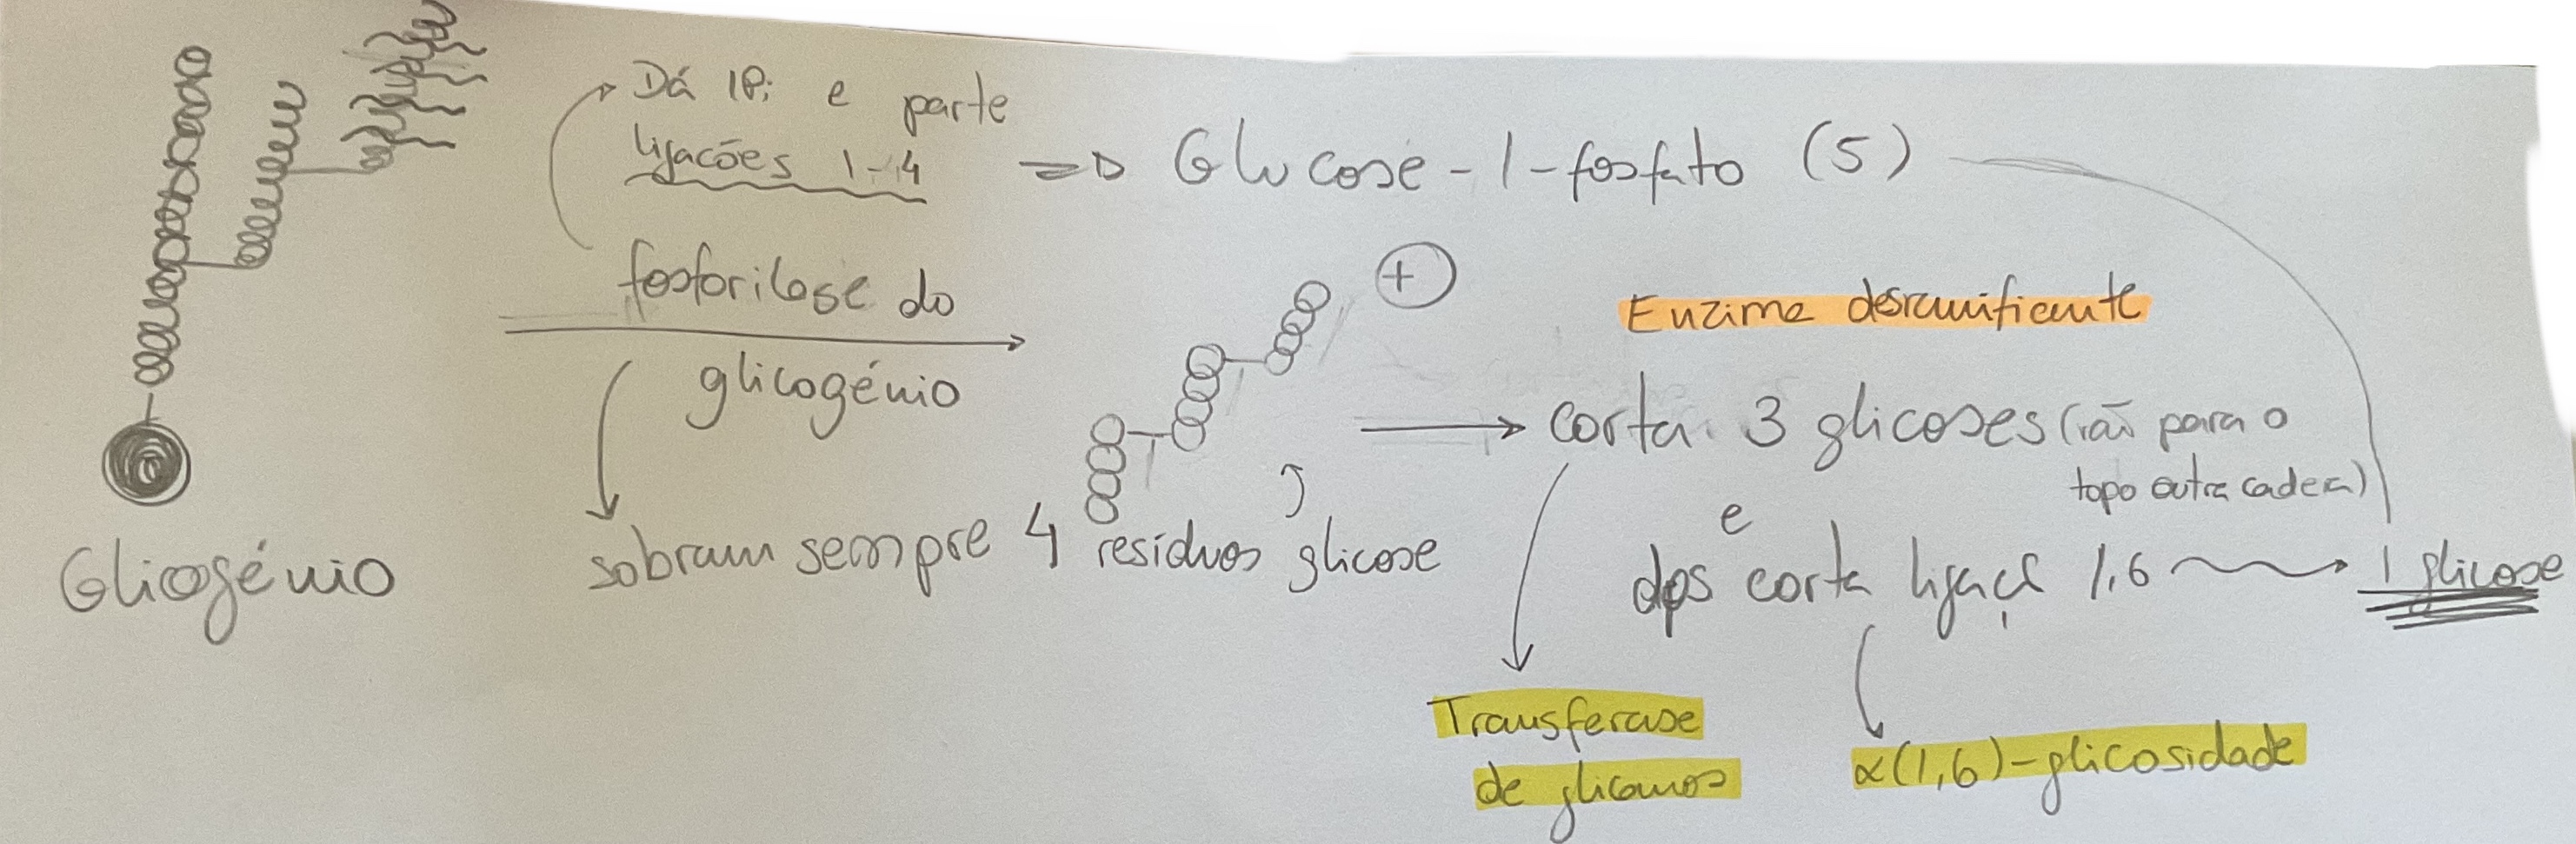 Dá 1Pi e parte
ligações 1-4 => Glucose-1-fosfato (5)
fosforilase do
glicogénio
+
Enzima desramificante
corta 3 glicoses (vão para o
topo outra cadeia)
e
dps corta ligaçã 1,6 → 1 glicose
sobram sempre 4 resíduos glicose
Gliogénio
Transferase
de glicanos
α(1,6)-glicosidade